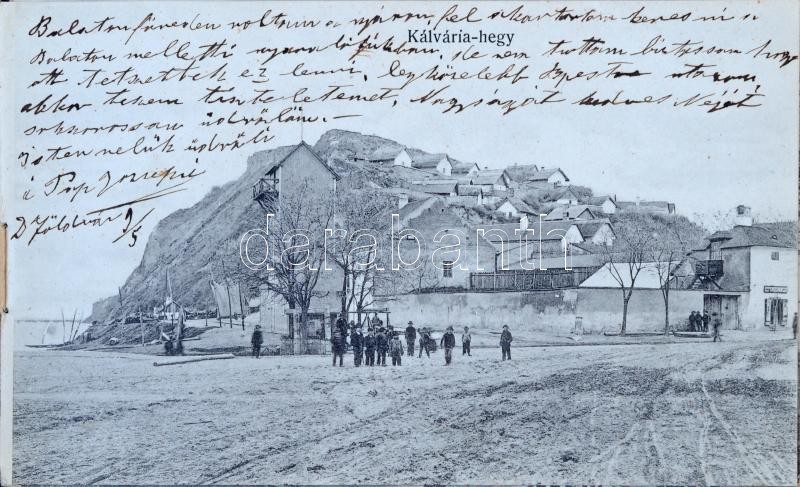 Balatonfüreden voltam a nyáron, fel akartam keresni a
Kálvária-hegy
Balaton melletti nyaralójukban, de nem tudtam biztosan hogy
ott tetszettek ez lenni, legközelebb Pesten
akkor teszem tiszteletemet, Nagyságát kedves Nejét
sokszorosan üdvözlöm. -
Isten velük üdvözli
Pap
D Földvár 9/5
darabanth